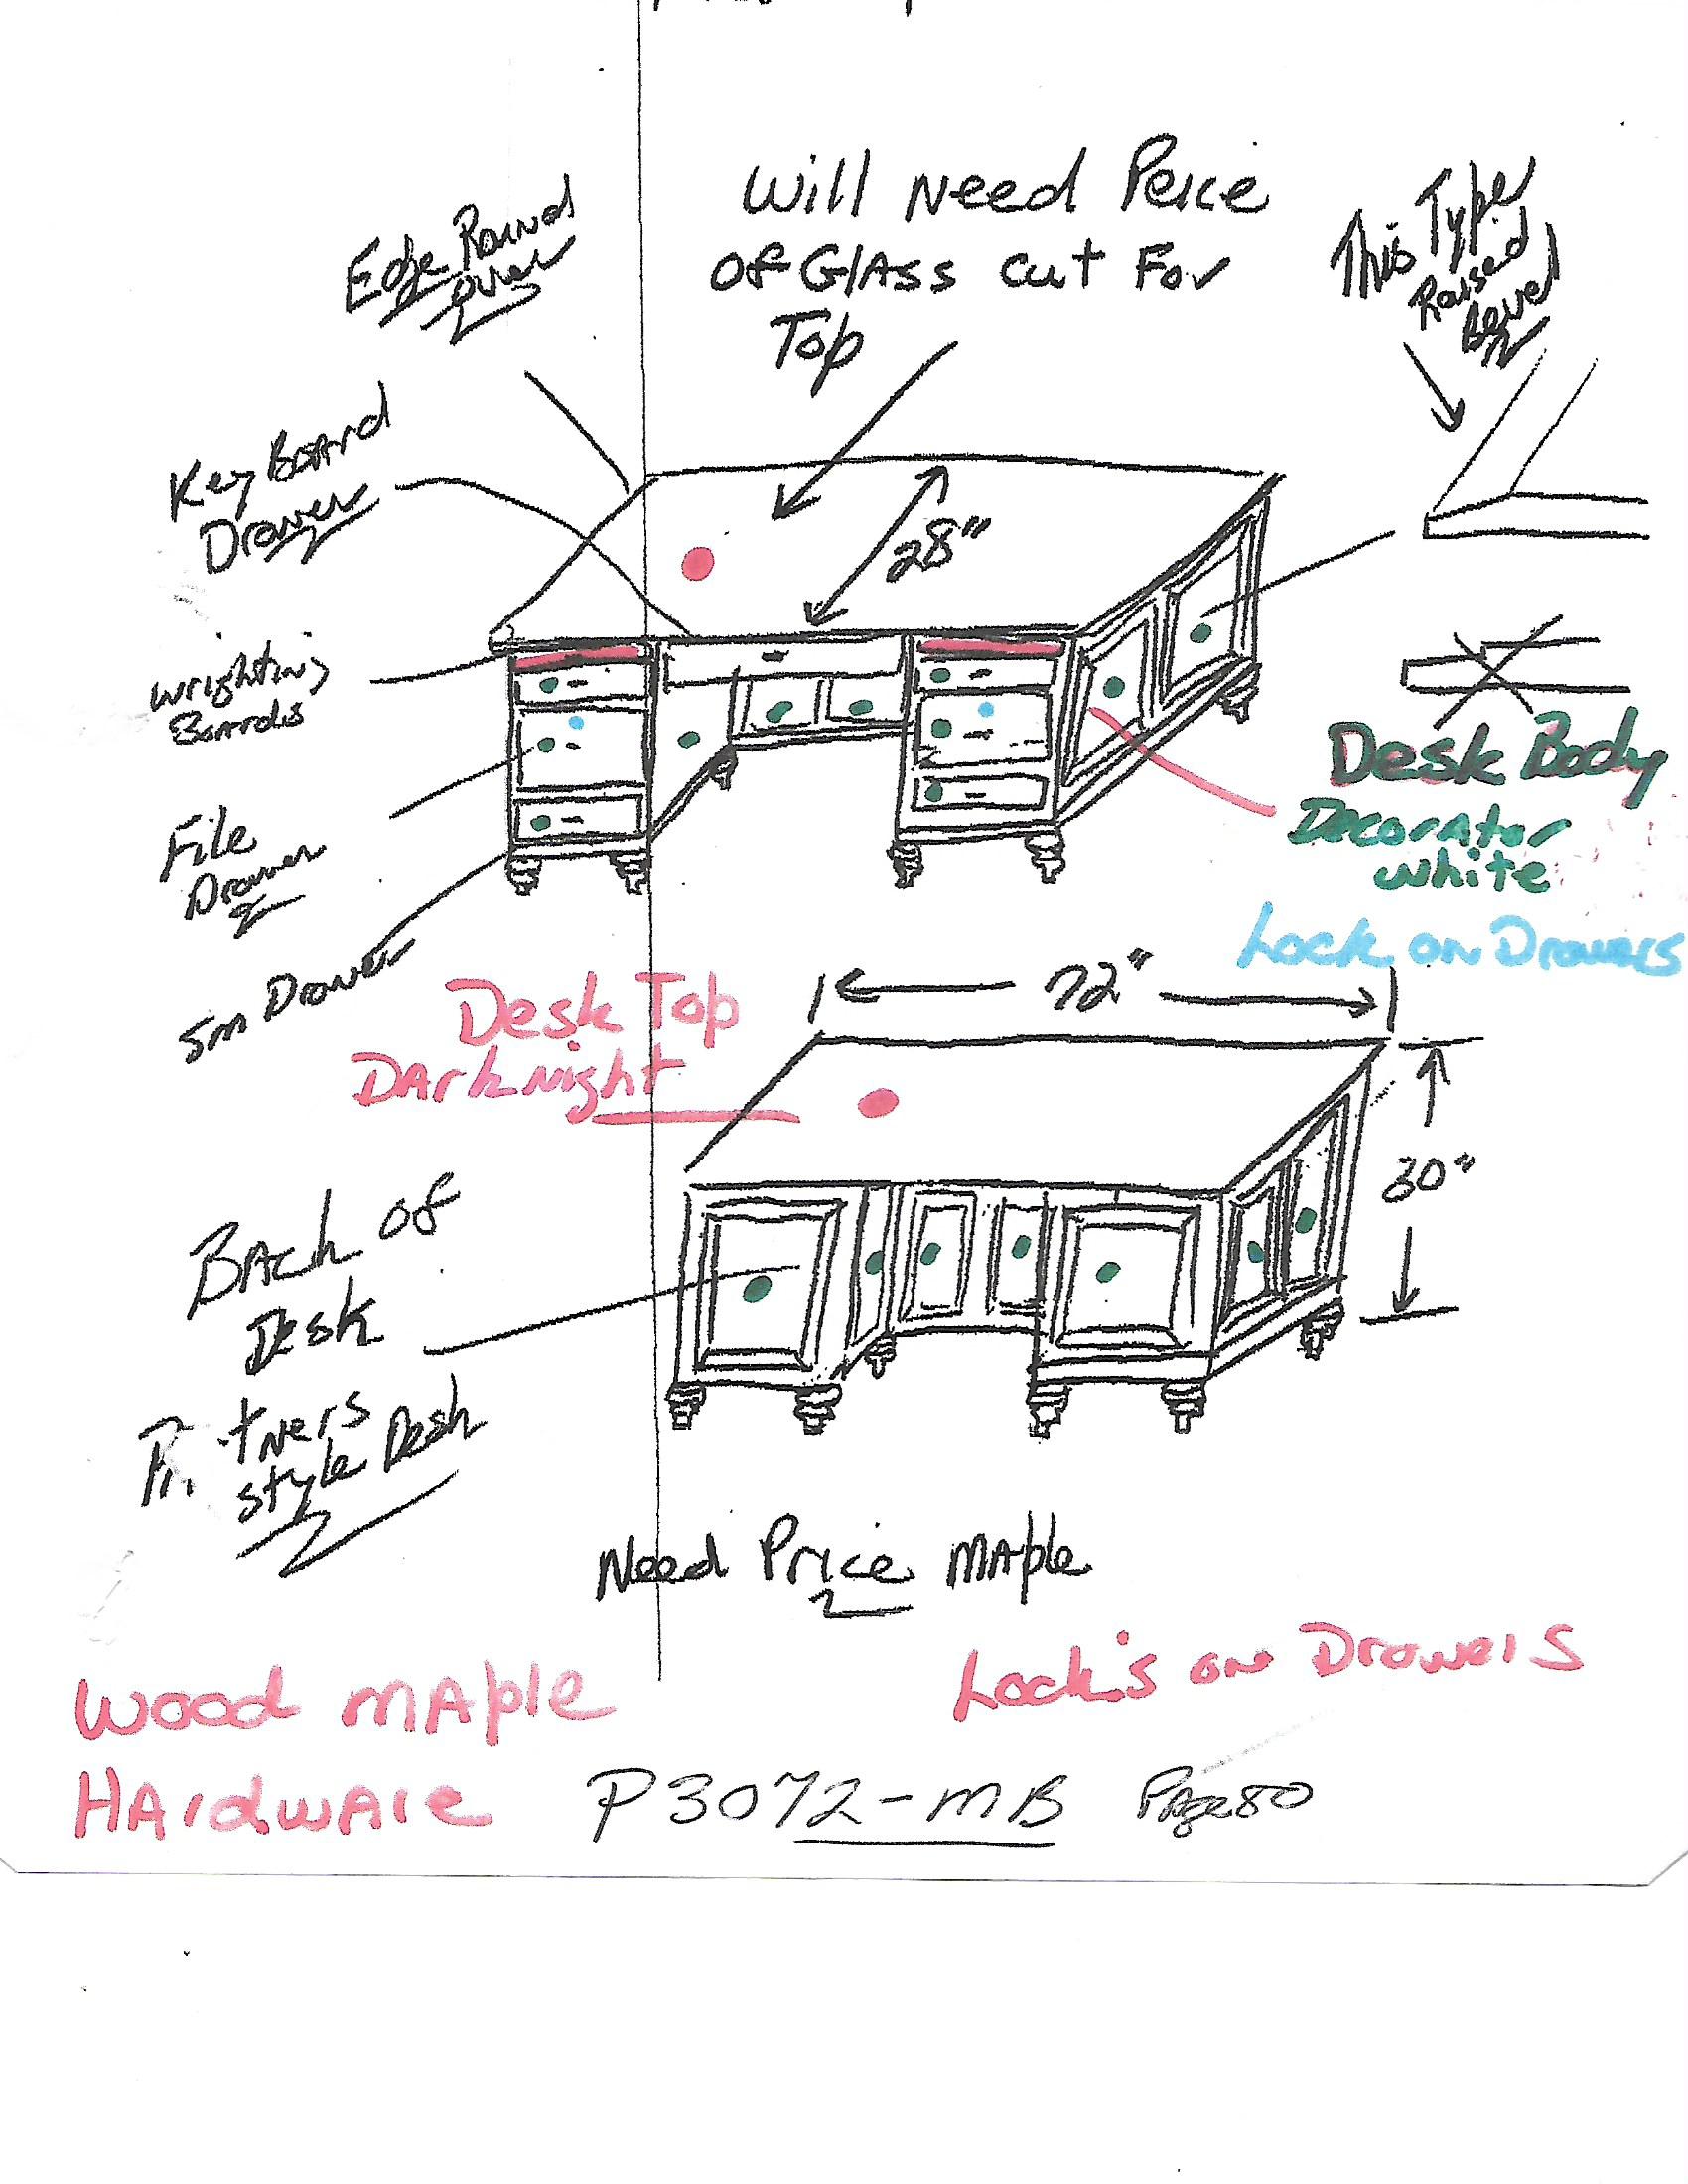 Will Need Perice
of Glass cut For
Top
Edge Round
over
This Type
Raised
Bevel
Key Board
Drawer
28"
wrighting
Boards
File
Drawer
Sm Drawer
Desk Body
Decorator
white
Lock on Drawers
Desk Top
Dark night
72"
30"
Back of
Desk
style Desk
Need Price Maple
Wood Maple
Lock's on Drawers
Hardware P3072-MB Page 80